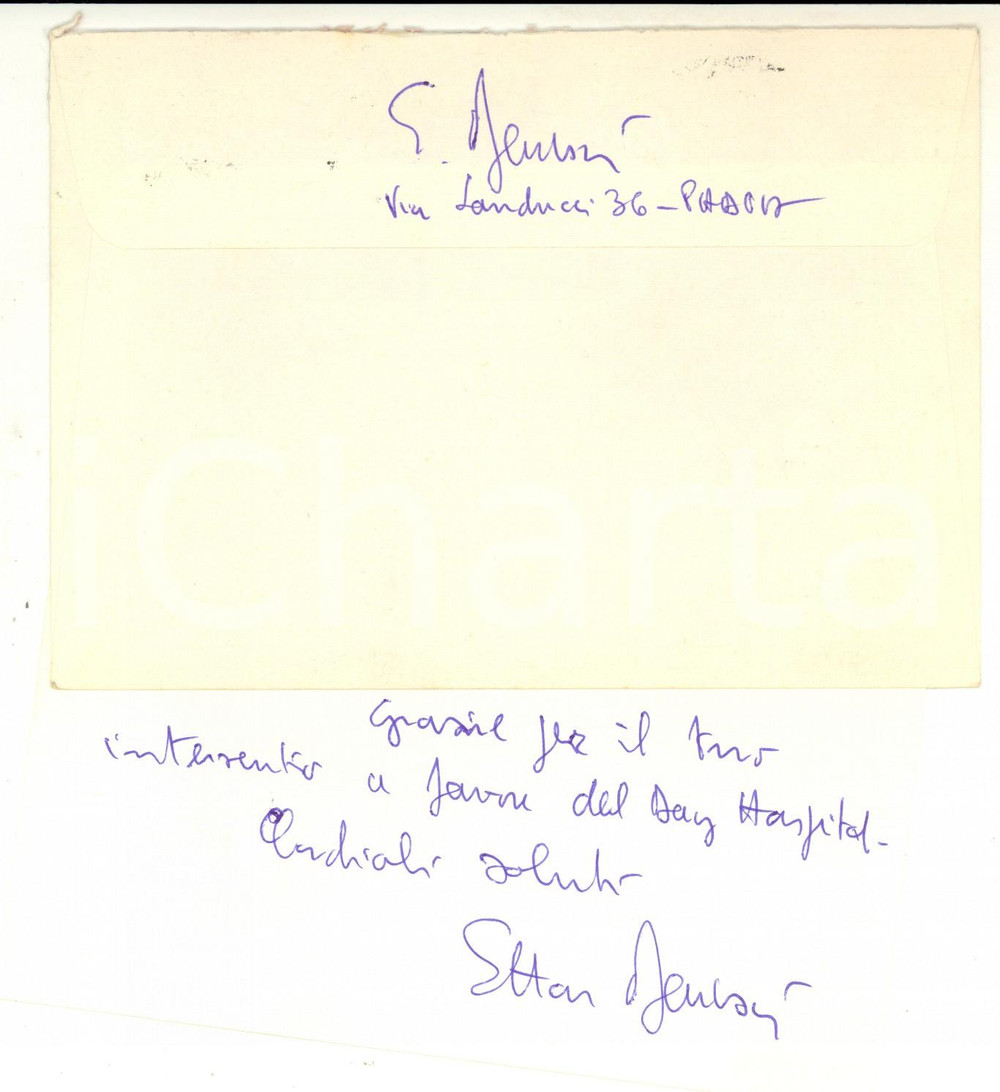 E.
Via Landucci 36 - PADOVA
iCharta
Grazie per il tuo
intervento a favore del Day Hospital-
Cordiali saluti
Ettore